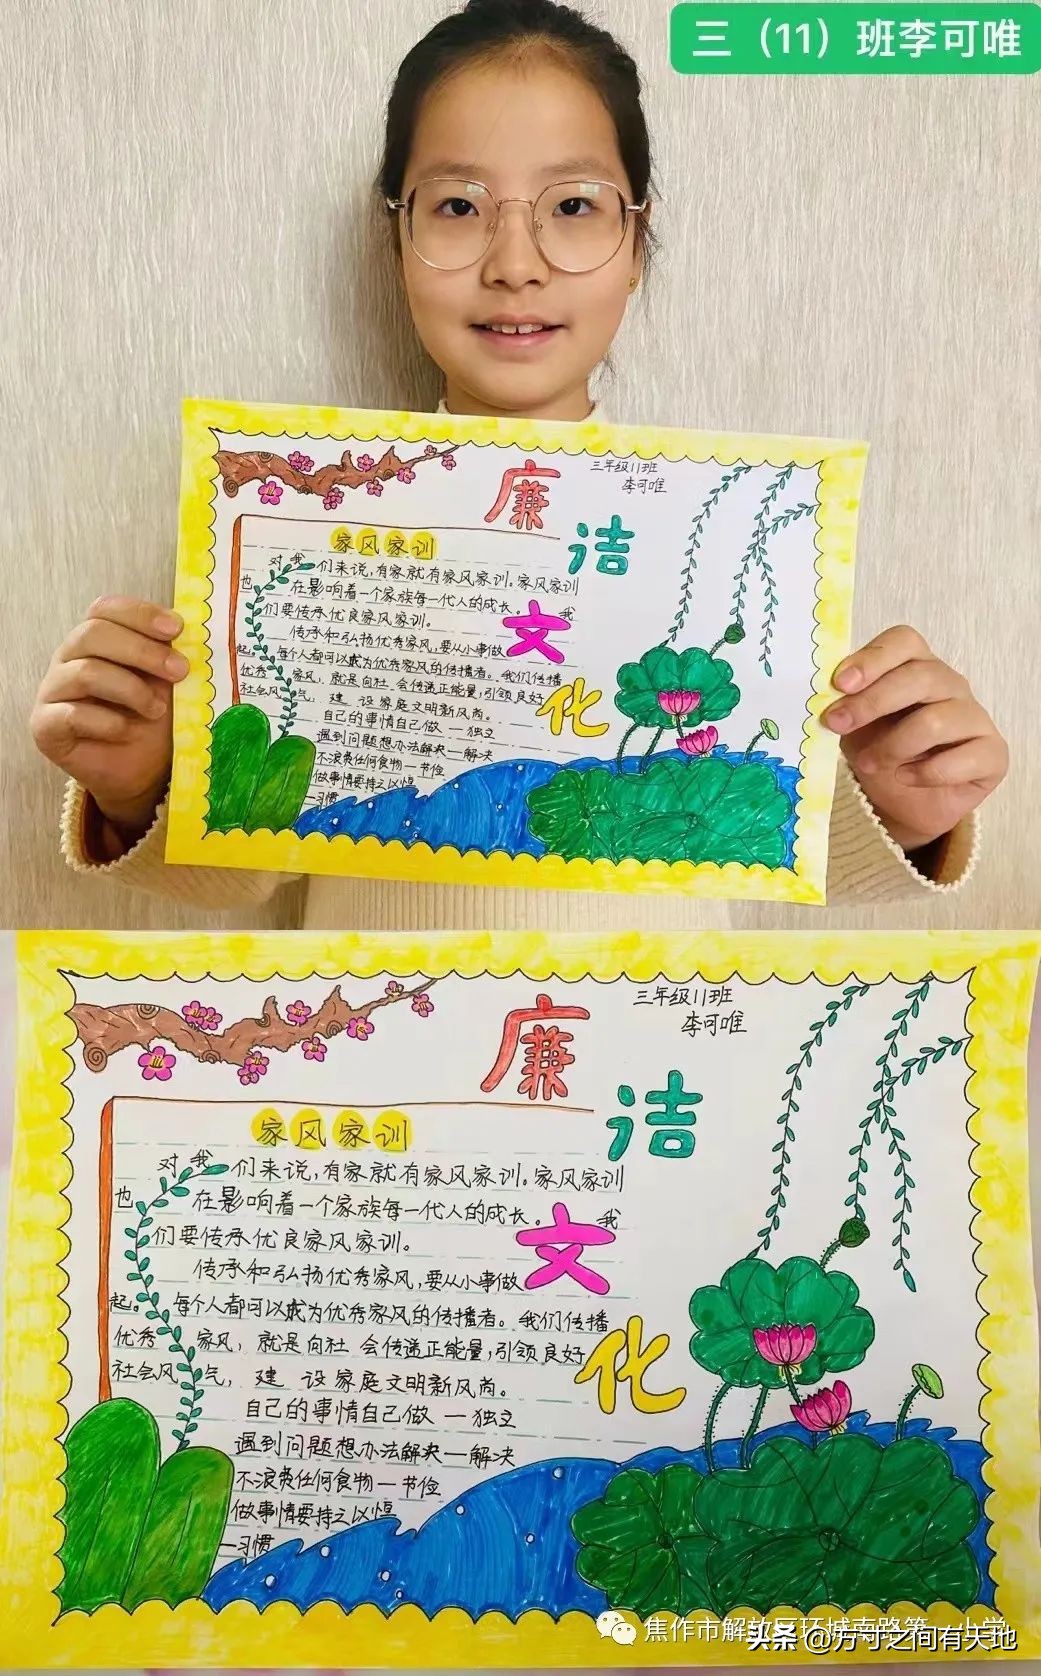 三（11）班李可唯
三年级11班
李可唯
廉
洁
文
化
家风家训
对我们来说，有家就有家风家训。家风家训
也在影响着一个家族每一代人的成长。我
们要传承优良家风家训。
传承和弘扬优秀家风，要从小事做
起。每个人都可以成为优秀家风的传播者。我们传播
优秀家风，就是向社会传递正能量，引领良好
社会风气，建设家庭文明新风尚。
自己的事情自己做一独立
遇到问题想办法解决一解决
不浪费任何食物一节俭
做事情要持之以恒
一习惯
三年级11班
李可唯
廉
洁
文
化
家风家训
对我们来说，有家就有家风家训。家风家训
也在影响着一个家族每一代人的成长。我
们要传承优良家风家训。
传承和弘扬优秀家风，要从小事做
起。每个人都可以成为优秀家风的传播者。我们传播
优秀家风，就是向社会传递正能量，引领良好
社会风气，建设家庭文明新风尚。
自己的事情自己做一独立
遇到问题想办法解决一解决
不浪费任何食物一节俭
做事情要持之以恒
一习惯
焦作市解放区环城南路第一小学
头条@方寸之间有天地